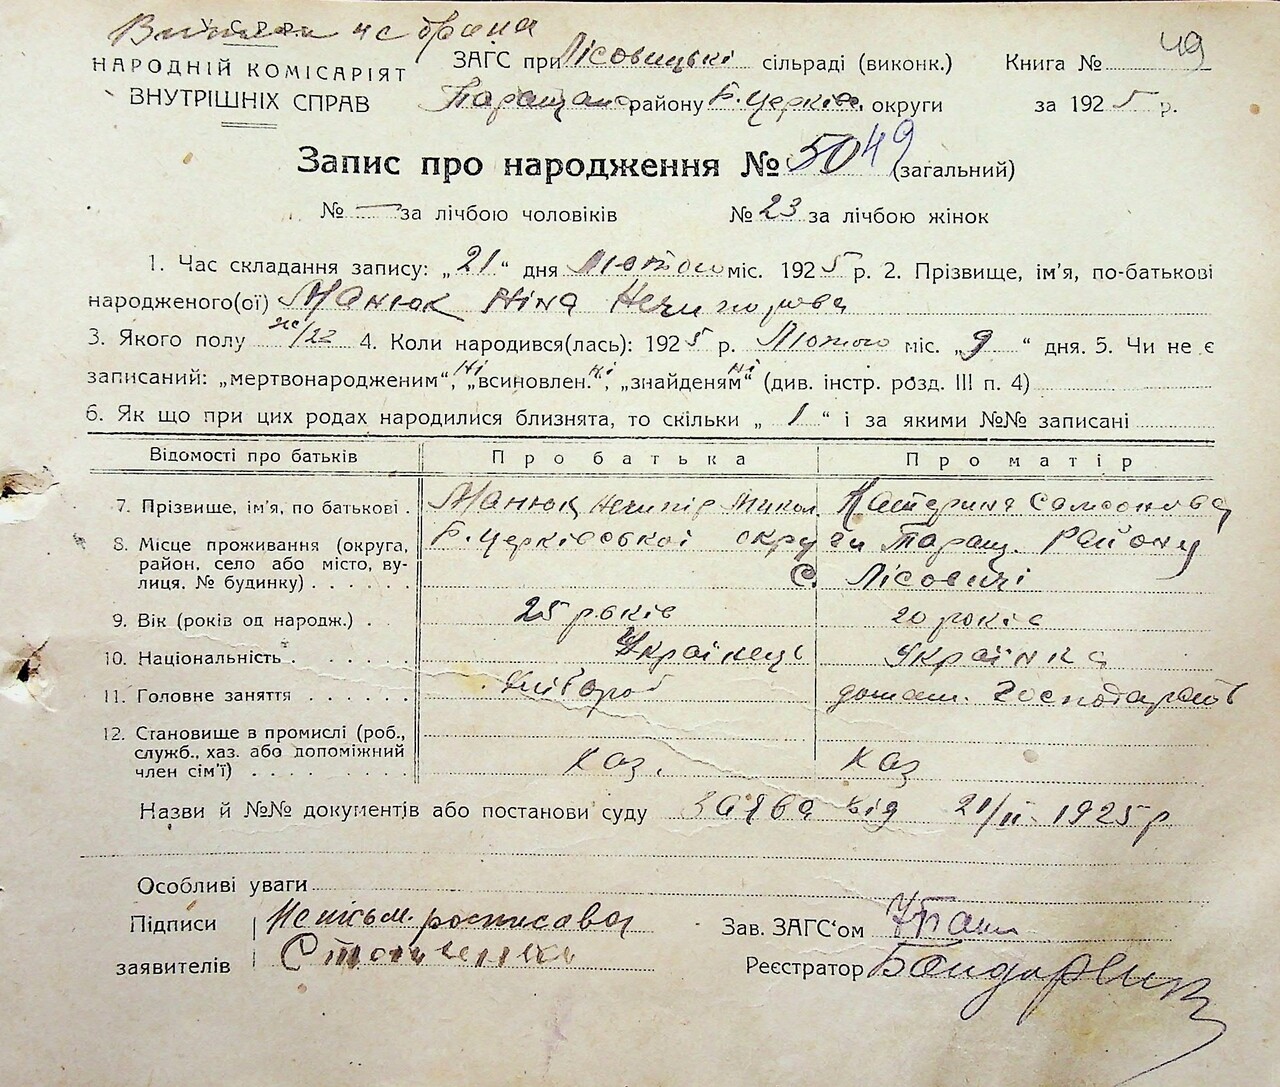 У.С.Р.Р.
НАРОДНІЙ КОМІСАРІЯТ
ВНУТРІШНІХ СПРАВ
ЗАГС при Лісовицькі сільраді (виконк.) Книга № 49
Таращанс району Б. Церків. округи за 1925 р.
Запис про народження № 50 49 (загальний)
№ — за лічбою чоловіків № 23 за лічбою жінок
1. Час складання запису: „21“ дня Лютого міс. 1925 р. 2. Прізвище, ім’я, по-батькові
народженого(ої) Манюк Ніна Нечипорова
3. Якого полу ж/22 4. Коли народився(лась): 1925 р. Лютого міс. „9“ дня. 5. Чи не є
записаний: „мертвонародженим“, ні „всиновлен.“, ні „знайденям“ ні (див. інстр. розд. III п. 4)
6. Як що при цих родах народилися близнята, то скільки „1“ і за якими №№ записані
Відомості про батьків Про батька Про матір
7. Прізвище, ім’я, по батькові . Манюк Нечипір Микол. Катерина Самсонова
8. Місце проживання (округа, Б. Церківської округи Таращ. Району
район, село або місто, ву-
лиця, № будинку) с. Лісовичі
9. Вік (років од народж.) . 25 років 20 років
10. Національність . Українець Українка
11. Головне заняття Хлібороб домаш. Господарств
12. Становище в промислі (роб.,
служб., хаз. або допоміжний
член сім’ї) Хаз. Хаз
Назви й №№ документів або постанови суду Заява від 21/II - 1925 р
Особливі уваги
Підписи Неписьм. росписавсь Зав. ЗАГС‘ом
заявителів Реєстратор